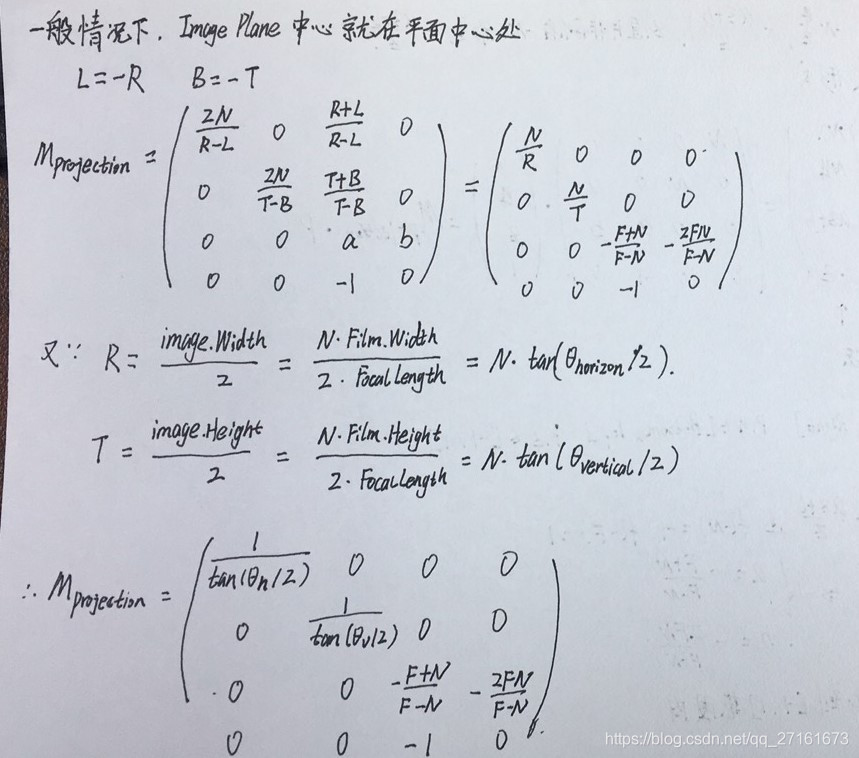 一般情况下, Image Plane 中心就在平面中心处
L=-R B=-T
M projection = ( 2N/(R-L) 0 (R+L)/(R-L) 0
0 2N/(T-B) (T+B)/(T-B) 0
0 0 a b
0 0 -1 0 ) = ( N/R 0 0 0
0 N/T 0 0
0 0 -(F+N)/(F-N) -2FN/(F-N)
0 0 -1 0 )
又∵ R = image.Width/2 = N·Film.Width/(2·FocalLength) = N·tan(θhorizon/2).
T = image.Height/2 = N·Film.Height/(2·FocalLength) = N·tan(θvertical/2)
∴ Mprojection = ( 1/tan(θh/2) 0 0 0
0 1/tan(θv/2) 0 0
0 0 -(F+N)/(F-N) -2FN/(F-N)
0 0 -1 0 )
https://blog.csdn.net/qq_27161673